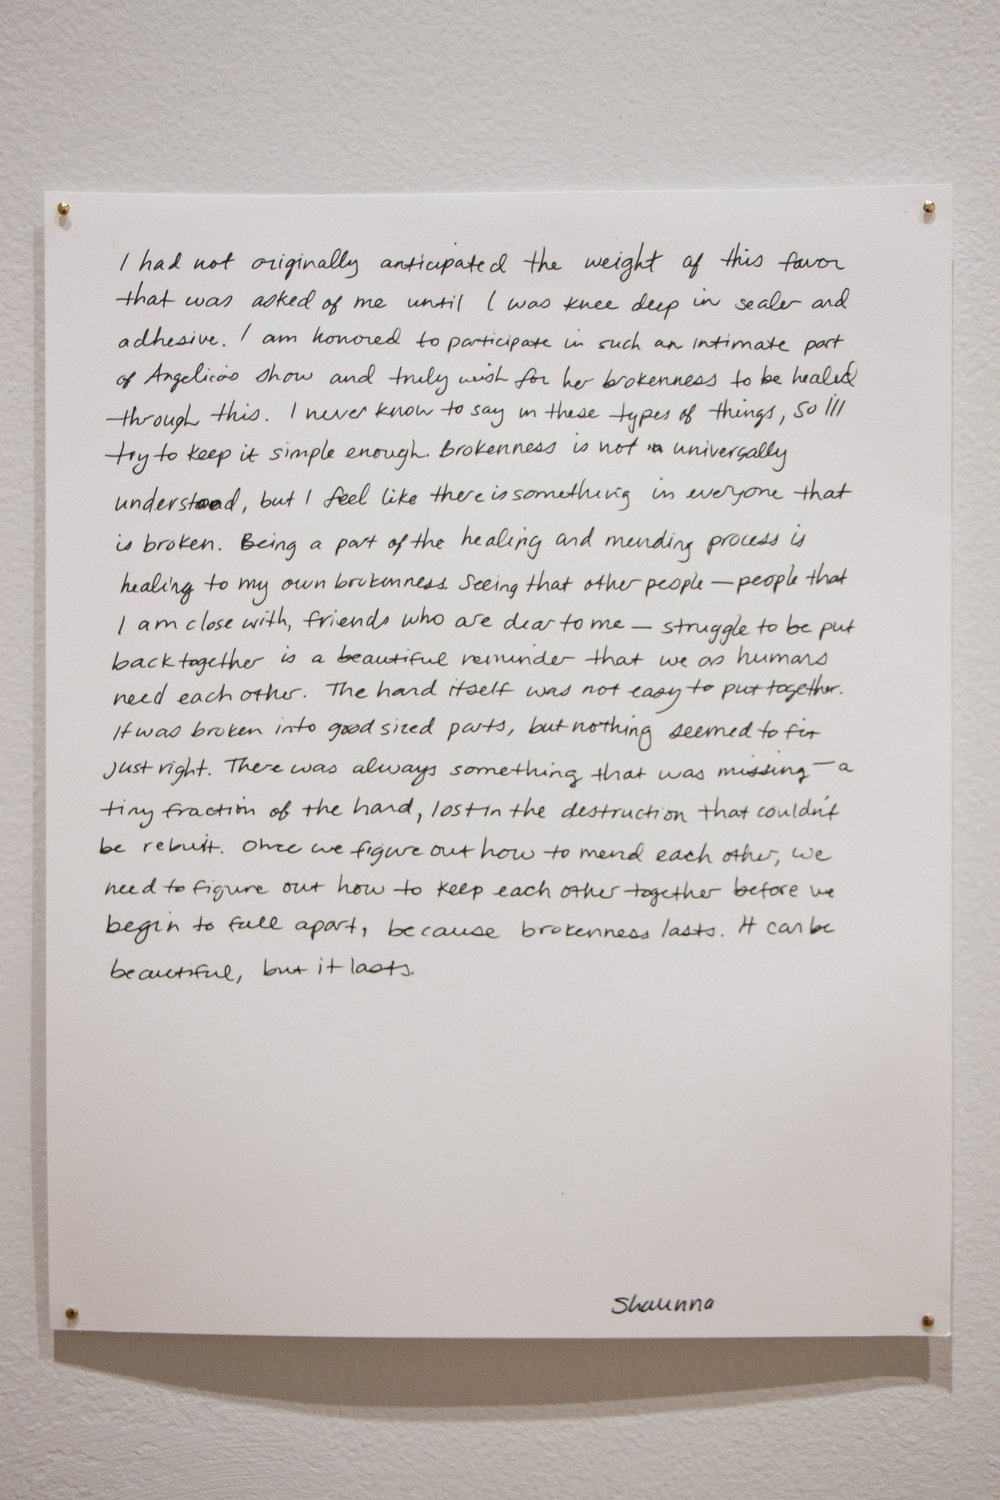 I had not originally anticipated the weight of this favor
that was asked of me until I was knee deep in sealer and
adhesive. I am honored to participate in such an intimate part
of Angelica's show and truly wish for her brokenness to be healed
through this. I never know to say in these types of things, so I'll
try to keep it simple enough. Brokenness is not universally
understood, but I feel like there is something in everyone that
is broken. Being a part of the healing and mending process is
healing to my own brokenness. Seeing that other people — people that
I am close with, friends who are dear to me — struggle to be put
back together is a beautiful reminder that we as humans
need each other. The hand itself was not easy to put together.
It was broken into good sized parts, but nothing seemed to fit
just right. There was always something that was missing — a
tiny fraction of the hand, lost in the destruction that couldn't
be rebuilt. Once we figure out how to mend each other, we
need to figure out how to keep each other together before we
begin to fall apart, because brokenness lasts. It can be
beautiful, but it lasts.
Shaunna